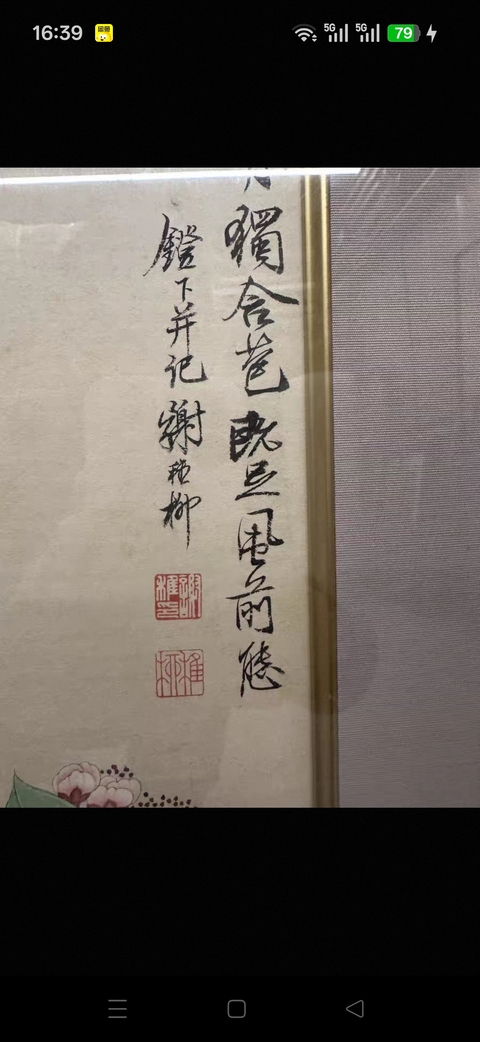 16:39
5G 5G 79
獨含苞既足風前態
鐙下并记 謝稚柳
稚柳